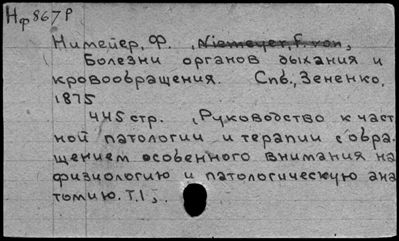 Нф867Р
Нимейер, Ф. , Niemeyer, F. von,
Болезни органов дыхания и
кровообращения. Спб., Зененко,
1875
445 стр. „Руководство к част
ной патологии и терапии с обра-
щением особенного внимания на
физиологию и патологическую ана
томию. Т.I„.